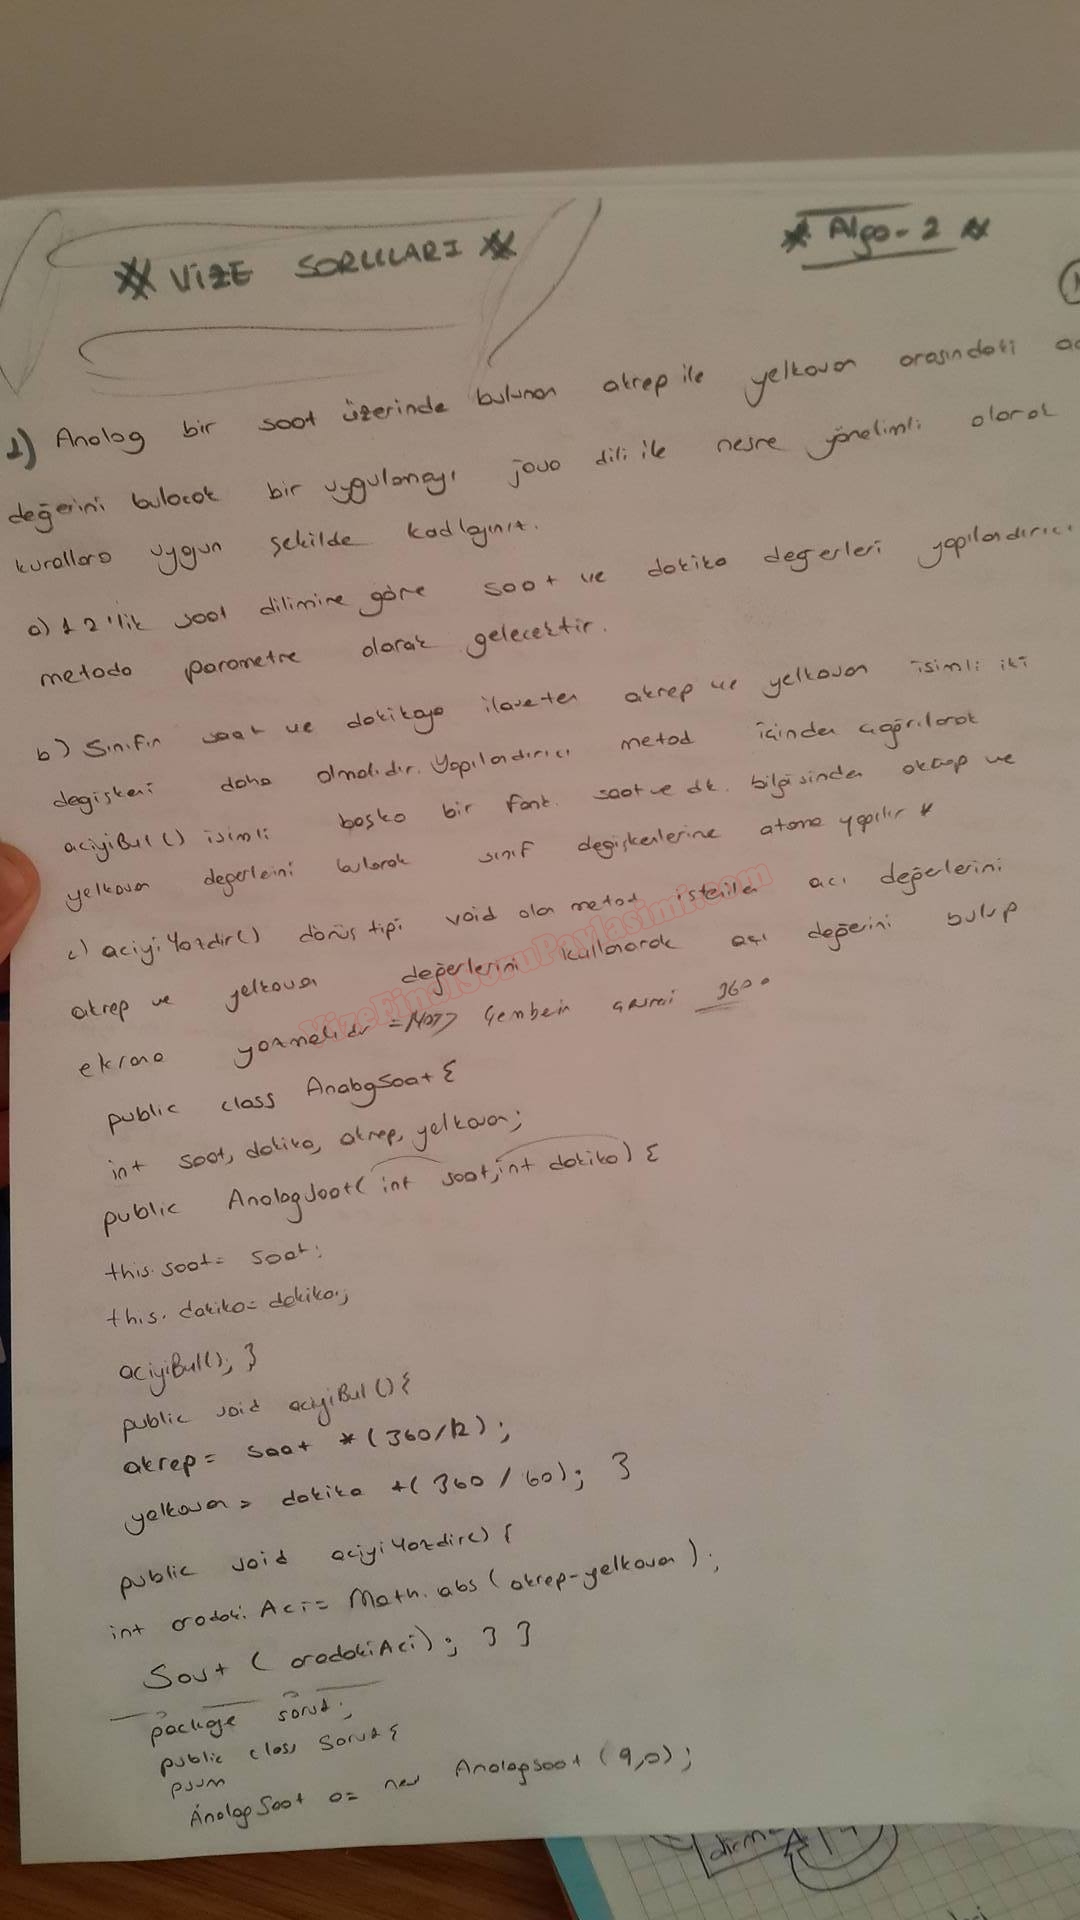 ** VİZE SORULARI **
* Algo-2 *
1) Analog bir saat üzerinde bulunan akrep ile yelkovan arasındaki
değerini bulacak bir uygulamayı java dili ile nesne yönelimli olarak
kurallara uygun şekilde kodlayınız.
a) 12'lik saat dilimine göre saat ve dakika değerleri yapılandırıcı
metoda parametre olarak gelecektir.
b) Sınıfın saat ve dakikaya ilaveten akrep ve yelkovan isimli iki
değişkeni daha olmalıdır. Yapılandırıcı metod içinden çağrılarak
aciyiBul() isimli başka bir fonk. saat ve dk. bilgisinden akrep ve
yelkovan değerleini bularak sınıf değişkenlerine atama yapılır *
c) aciyiYazdir() dönüş tipi void olan metod istenilen acı değelerini
akrep ve yelkovan değerlerini kullanarak açı değerini bulup
ekrana yazmalıdır = Not => Çemberin çevresi 360°
VizeFinalSoruPaylasimi.com
public class AnalogSaat {
int saat, dakika, akrep, yelkovan;
public AnalogSaat( int saat, int dakika) {
this.saat= saat;
this.dakika= dakika;
aciyiBul(); }
public void aciyiBul () {
akrep= saat *(360/12);
yelkovan= dakika *(360/60); }
public void aciyiYazdir() {
int aradakiAci= Math.abs(akrep-yelkovan);
Sout (aradakiAci); } }
package soru1;
public class Soru1 {
psvm
AnalogSaat a= new AnalogSaat (9,0);
dirm